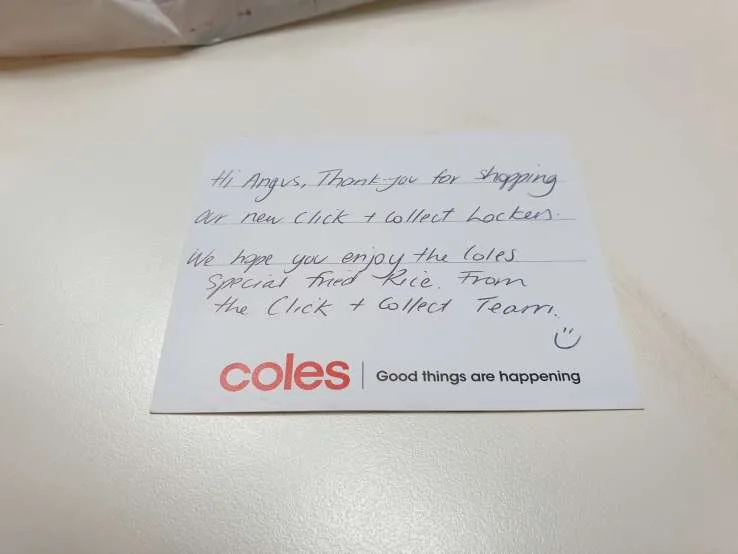 Hi Angus, Thank-you for shopping
our new Click + Collect Lockers.
We hope you enjoy the Coles
Special Fried Rice. From
the Click + Collect Team.
coles | Good things are happening